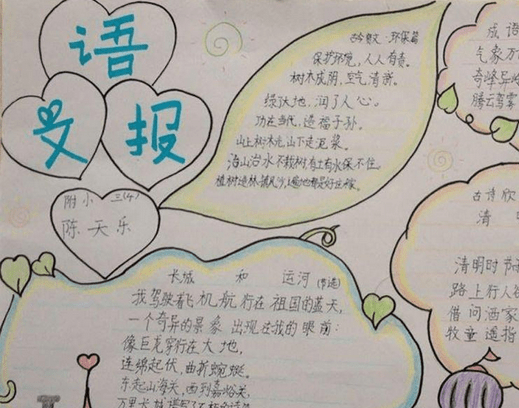 语
文
报
附小 三(4)
陈天乐
古今贤文·环保篇
保护环境，人人有责。
树木成阴，空气清新。
绿沃地，润了人心。
功在当代，造福子孙。
山上树木光，山下走泥浆。
治山治水不栽树，有土有水保不住。
植树造林，遍地都是
长城 和 运河（节选）
我驾驶着飞机航行在祖国的蓝天，
一个奇异的景象出现在我的眼前：
像巨龙穿行在大地，
连绵起伏，曲折蜿蜒。
东起山海关，西到嘉峪关，
万里长城
成语
气象万
奇峰异
腾云驾雾
古诗欣
清
清明时节
路上行人
借问酒家
牧童遥指